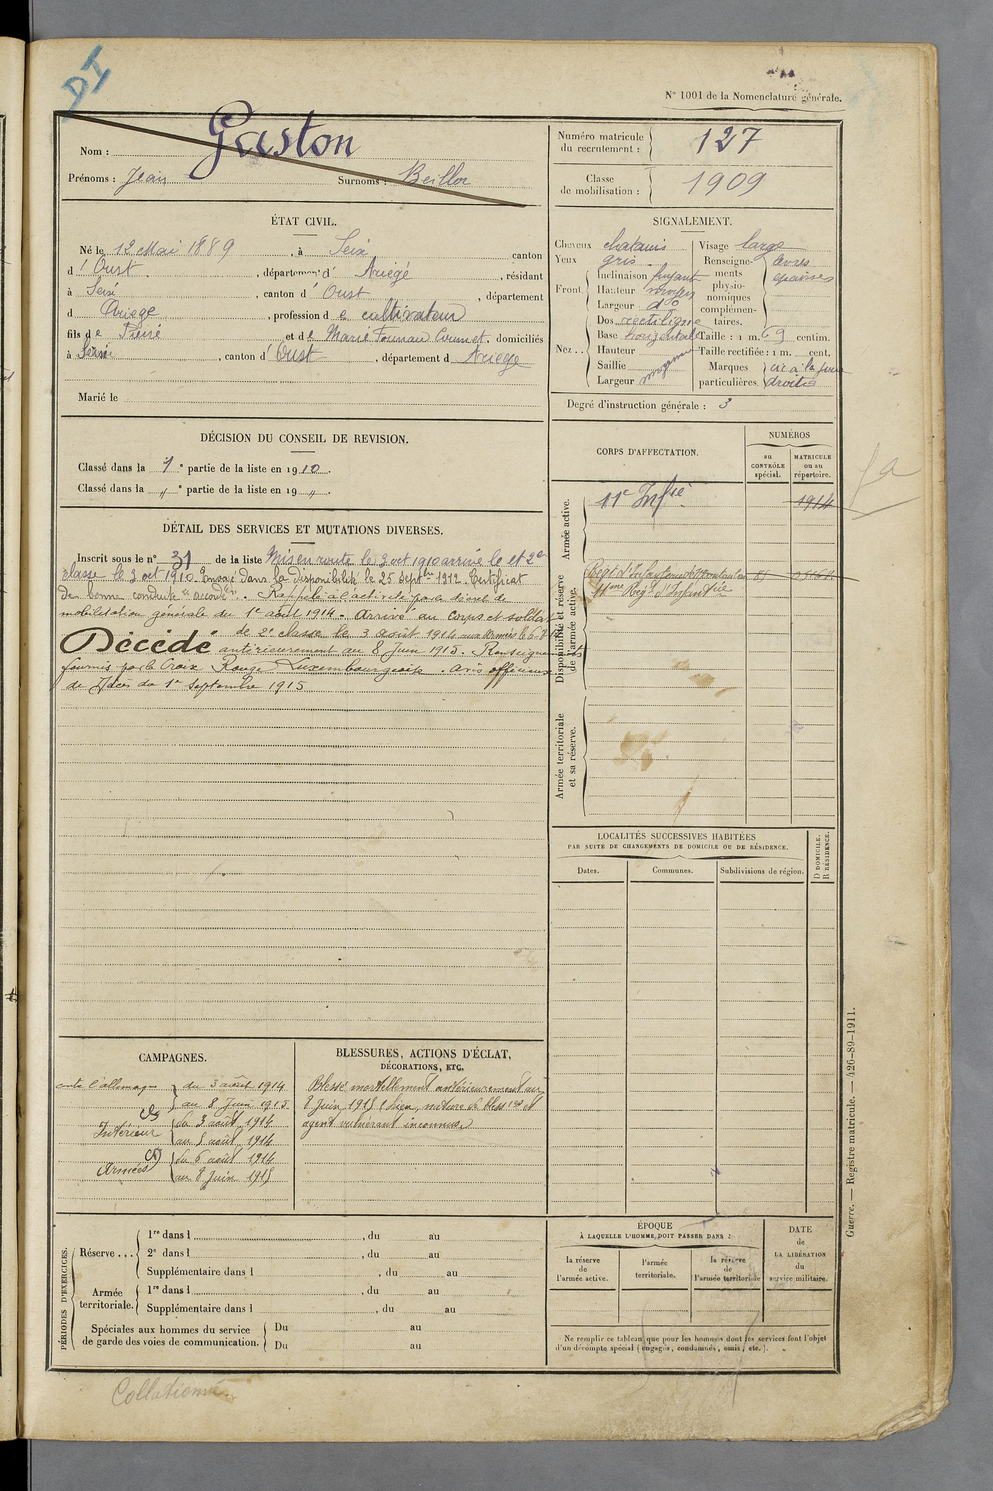 DI
N° 1001 de la Nomenclature générale.
Nom : Gaston
Prénoms : Jean Surnoms : Beillor
Numéro matricule du recrutement : 127
Classe de mobilisation : 1909
ÉTAT CIVIL.
Né le 12 Mai 1889, à Seix canton
d'Oust, département d'Ariège, résidant
à Seix, canton d'Oust, département
d Ariege, profession de cultivateur
fils de Pierre et de Marie Tournau Coumet, domiciliés
à Seix, canton d'Oust, département d Ariege
Marié le
SIGNALEMENT.
Cheveux chatains
Yeux gris
Front Inclinaison fuyant
Hauteur moyen
Largeur d°
Nez Dos rectiligne
Base horizontale
Hauteur
Saillie
Largeur moyenne
Visage large
Renseignements physionomiques complémentaires. lèvres épaisses
Taille : 1 m. 69 centim.
Taille rectifiée : 1 m. cent.
Marques particulières cic à la joue droite
Degré d'instruction générale : 3
DÉCISION DU CONSEIL DE REVISION.
Classé dans la 1e partie de la liste en 1910.
Classé dans la " e partie de la liste en 19 ".
CORPS D'AFFECTATION.
NUMÉROS
au CONTRÔLE spécial.
MATRICULE ou au répertoire.
Armée active.
11e Infie 1914
Disponibilité et réserve de l'armée active.
Régt d'Infanterie de Montauban
11eme Régt d'Infanterie
Armée territoriale et sa réserve.
DÉTAIL DES SERVICES ET MUTATIONS DIVERSES.
Inscrit sous le n° 31 de la liste Mis en route le 3 oct 1910 arrivé le et 2e
classe le 3 oct 1910. Envoyé dans la disponibilité le 25 septbre 1912. Certificat
de bonne conduite "accordé". Rappelé à l'activité par le décret de
mobilisation générale du 1er août 1914. Arrivé au corps et soldat
de 2e classe le 3 août 1914 aux Armées le 6
Décédé antérieurement au 8 Juin 1915. Renseignement
fournis par la Croix Rouge Luxembourgeoise. Avis officieux
de décès du 1er Septembre 1915
LOCALITÉS SUCCESSIVES HABITÉES
PAR SUITE DE CHANGEMENTS DE DOMICILE OU DE RÉSIDENCE.
Dates.
Communes.
Subdivisions de région.
D DOMICILE.
R RÉSIDENCE.
CAMPAGNES.
contre l'allemagne du 3 août 1914
au 8 Juin 1915
Intérieur du 3 août 1914
au 5 août 1914
Armées du 6 août 1914
au 8 Juin 1915
BLESSURES, ACTIONS D'ÉCLAT, DÉCORATIONS, ETC.
Blessé mortellement antérieurement au
8 Juin 1915 (lieu, nature de bless res et
agent vulnérant inconnus)
PÉRIODES D'EXERCICES.
Réserve ... 1re dans l , du au
2e dans l , du au
Supplémentaire dans l , du au
Armée territoriale. 1re dans l , du au
Supplémentaire dans l , du au
Spéciales aux hommes du service de garde des voies de communication. Du au
Du au
ÉPOQUE
À LAQUELLE L'HOMME DOIT PASSER DANS :
la réserve de l'armée active.
l'armée territoriale.
la réserve de l'armée territoriale
DATE de LA LIBÉRATION du service militaire.
Ne remplir ce tableau que pour les hommes dont les services font l'objet
d'un décompte spécial (engagés, condamnés, omis, etc.).
Guerre. — Registre matricule. — 426-89-1911.
Collationné